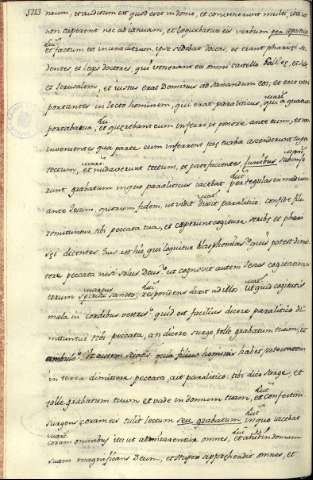 5223 navm, et auditum est quod esset in domo, et convenerunt multi, ita ut
non caperent nec ad ianuam, et loquebatur eis verbum
et factum est in una dierum ipse sedebat docens, et erant pharisei se-
dentes et legis doctores, qui venerant ex omni castello
et Ierusalem, et virtus erat Domini ad sanandum eos, et ecce viri
portantes in lecto hominem, qui erat paraliticus, qui a quatuor
portabatur, et querebant eum inferre et ponere ante eum, et non
invenientes qua parte eum inferrent pre turba ascenderunt supra
tectum, et nudaverunt tectum, et patefacientes funibus submise-
runt grabatum in quo paraliticus iacebat per tegulas in medium
ante Iesum, quorum fidem ut vidit dixit paralitico confide fili
remittuntur tibi peccata tua, et ceperunt cogitare scribe et phari
sei dicentes quis est hic qui loquitur blasphemias? quis potest dimit-
tere peccata nisi solus Deus? ut cognovit autem Iesus cogitationes
eorum spiritu sancto, respondens dixit ad illos ut quid cogitatis
mala in cordibus vestris? quid est facilius dicere paralitico di-
mittuntur tibi peccata, an dicere surge tolle grabatum tuum, et
ambula? Ut autem sciatis quia filius hominis habet potestatem
in terra dimittere peccata, ait paralitico, tibi dico surge, et
tolle grabatum tuum et vade in domum tuam, et confestim
surgens coram eis tulit lectum seu grabatum in quo iacebat
coram omnibus ita ut admirarentur omnes, et abiit in domum
suam magnificans Deum, et stupor apprehendit omnes, et